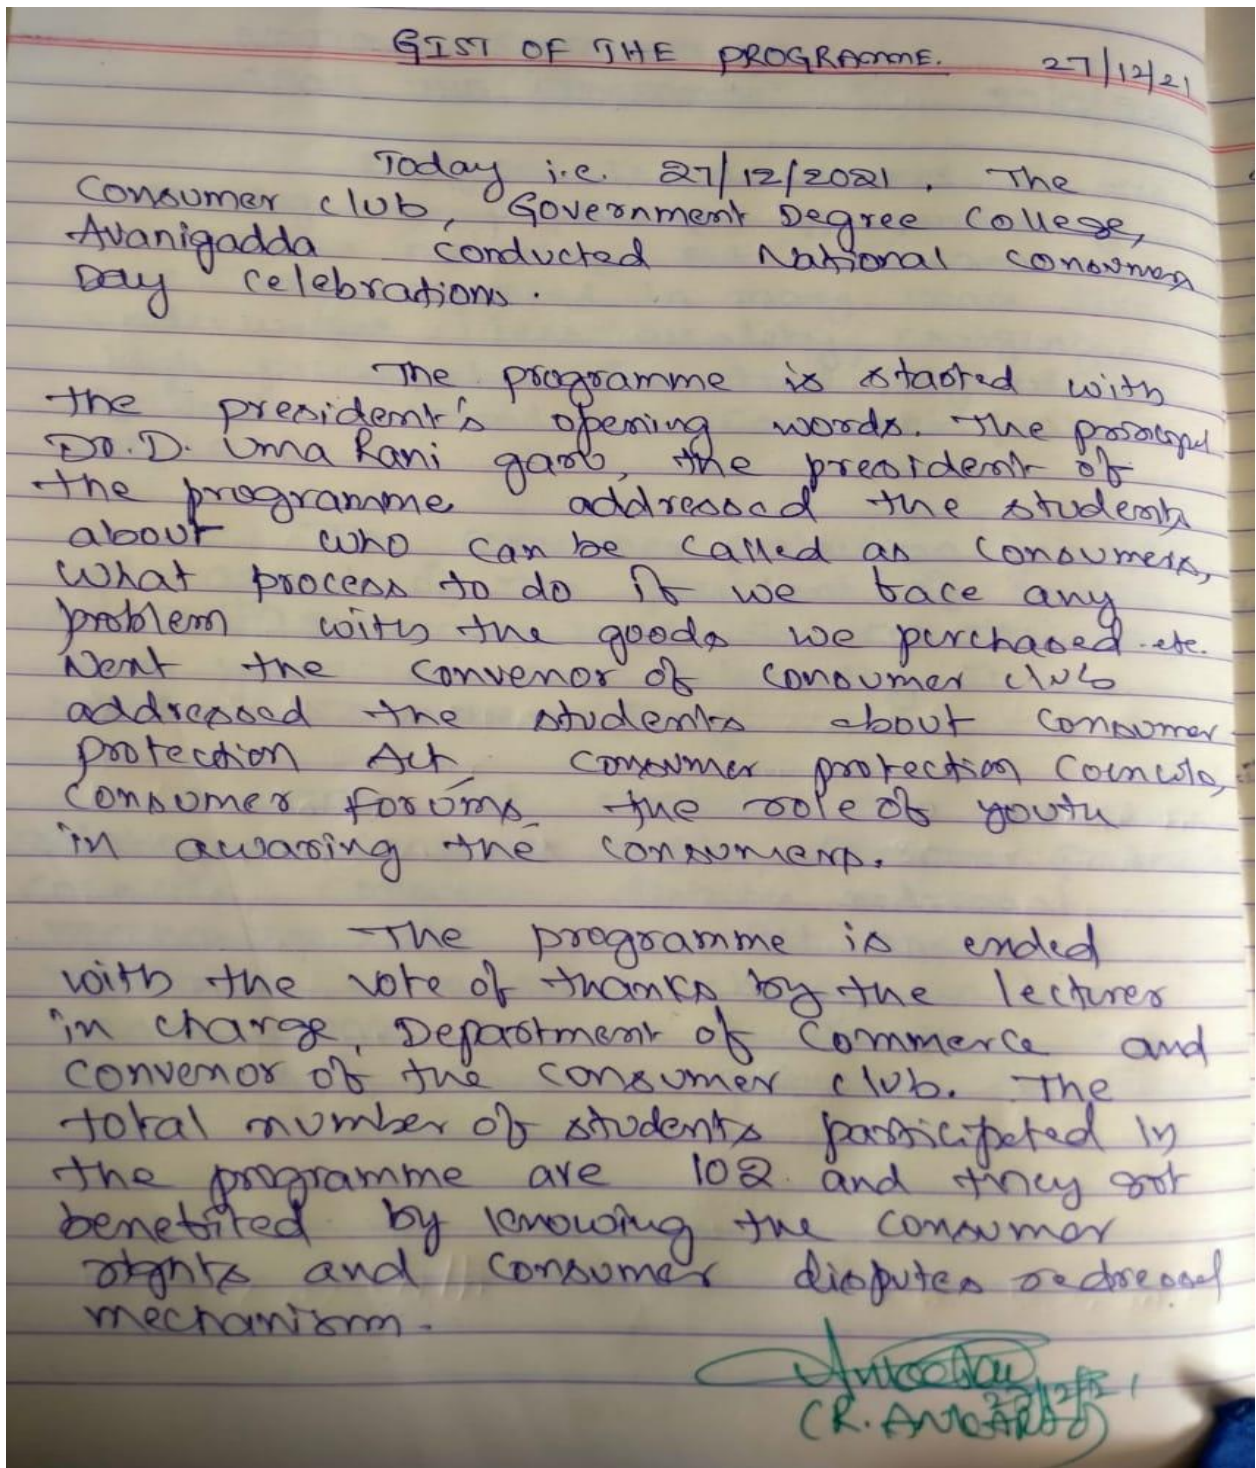 GIST OF THE PROGRAMME. 27/12/21
Today i.e. 27/12/2021. The
Consumer club, Government Degree College,
Avanigadda conducted National consumer
Day celebrations.
The programme is started with
the president's opening words. The principal
Dr. D. Uma Rani garu, the president of
the programme addressed the students
about who can be called as consumers,
what process to do if we face any
problem with the goods we purchased etc.
Next the convenor of consumer club
addressed the students about consumer
protection Act, consumer protection councils,
consumer forums, the role of youth
in awaring the consumers.
The programme is ended
with the vote of thanks by the lecturer
in charge, Department of Commerce and
convenor of the consumer club. The
total number of students participated in
the programme are 102 and they got
benefited by knowing the consumer
rights and consumer disputes redressal
mechanism.
27/12/21
(R.